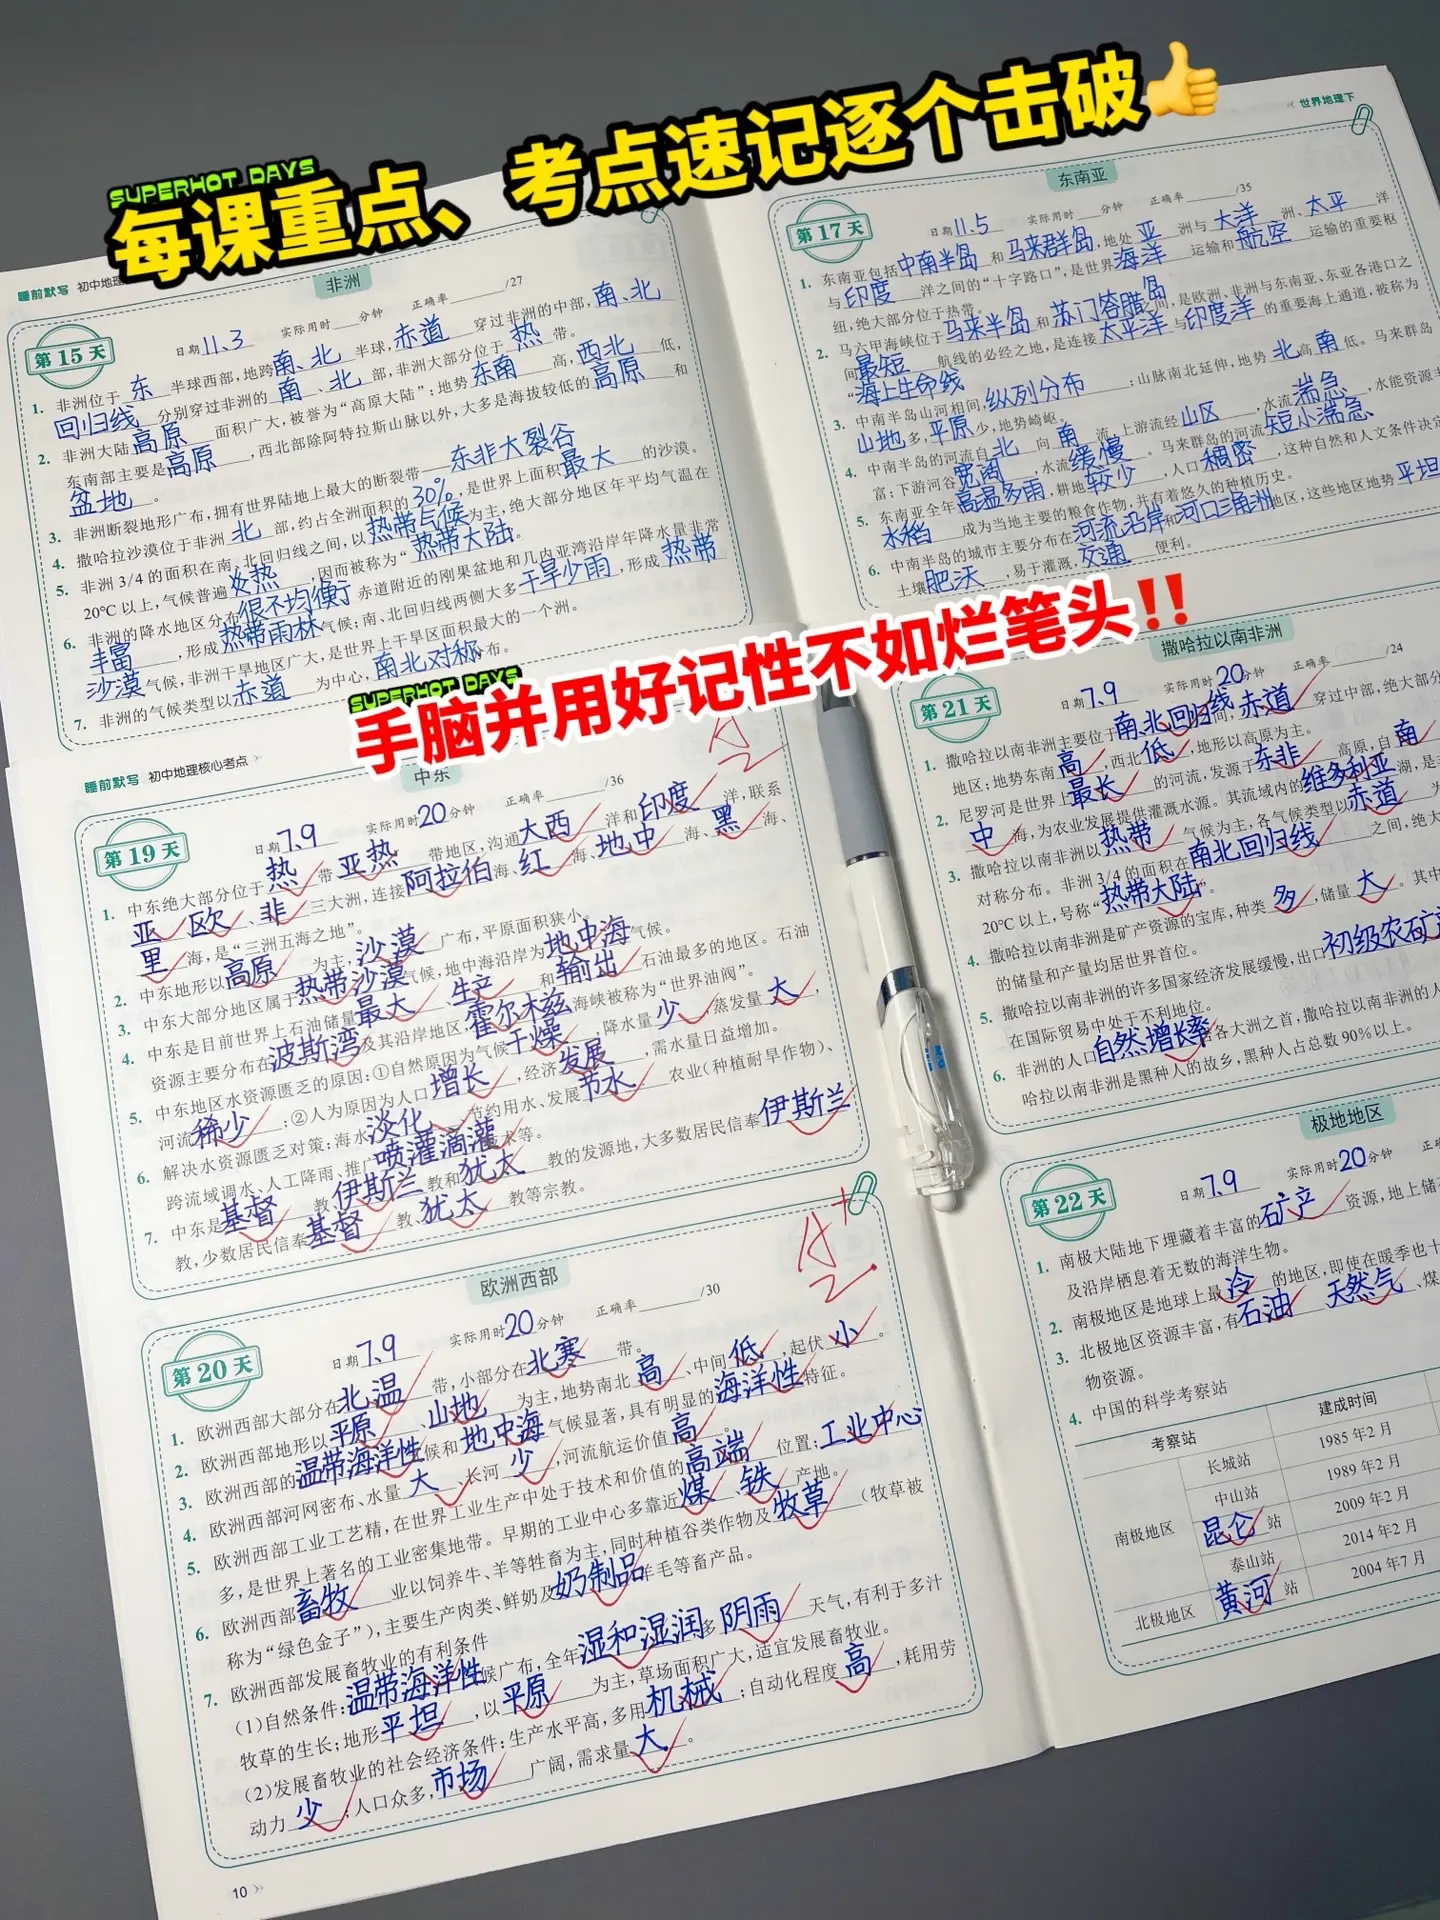 每课重点、考点速记逐个击破👍
SUPERHOT DAYS
睡前默写 初中地理
非洲
第15天
日期11.3 实际用时 分钟 正确率 /27
1. 非洲位于东半球西部,地跨南、北半球,赤道穿过非洲的中部,南、北
回归线分别穿过非洲的南、北部,非洲大部分位于热带。
2. 非洲大陆高原面积广大,被誉为“高原大陆”;地势东南高,西北低,
东南部主要是高原,西北部除阿特拉斯山脉以外,大多是海拔较低的高原和
盆地。
3. 非洲断裂地形广布,拥有世界陆地上最大的断裂带——东非大裂谷
4. 撒哈拉沙漠位于非洲北部,约占全洲面积的30%,是世界上面积最大的沙漠。
5. 非洲3/4的面积在南、北回归线之间,以热带气候为主,绝大部分地区年平均气温在
20℃以上,气候普遍炎热,因而被称为“热带大陆”。
6. 非洲的降水地区分布很不均衡,赤道附近的刚果盆地和几内亚湾沿岸年降水量非常
丰富,形成热带雨林气候;南、北回归线两侧大多干旱少雨,形成热带
沙漠气候,非洲干旱地区广大,是世界上干旱区面积最大的一个洲。
7. 非洲的气候类型以赤道为中心,南北对称分布。
世界地理下
东南亚
第17天
日期11.5 实际用时 分钟 正确率 /35
1. 东南亚包括中南半岛和马来群岛,地处亚洲与大洋洲、太平洋
与印度洋之间的“十字路口”,是世界海洋运输和航空运输的重要枢
纽,绝大部分位于热带。
2. 马六甲海峡位于马来半岛和苏门答腊岛之间,是欧洲、非洲与东南亚、东亚各港口之
间最短航线的必经之地,是连接太平洋与印度洋的重要海上通道,被称为
“海上生命线
3. 中南半岛山河相间,纵列分布;山脉南北延伸,地势北高南低。马来群岛
山地多,平原少,地势崎岖。
4. 中南半岛的河流自北向南流,上游流经山区,水流湍急,水能资源丰
富;下游河谷宽阔,水流缓慢。马来群岛的河流短小湍急
5. 东南亚全年高温多雨,耕地较少,人口稠密,这种自然和人文条件决定
水稻成为当地主要的粮食作物,并有着悠久的种植历史。
6. 中南半岛的城市主要分布在河流沿岸和河口三角洲地区,这些地区地势平坦
土壤肥沃,易于灌溉,交通便利。
SUPERHOT DAYS
手脑并用好记性不如烂笔头‼️
睡前默写 初中地理核心考点
中东
第19天
日期7.9 实际用时20分钟 正确率 /36
1. 中东绝大部分位于热带亚热带地区,沟通大西洋和印度洋,联系
亚欧非三大洲,连接阿拉伯海、红海、地中海、黑海、
里海,是“三洲五海之地”。
2. 中东地形以高原为主,沙漠广布,平原面积狭小。
3. 中东大部分地区属于热带沙漠气候,地中海沿岸为地中海气候。
4. 中东是目前世界上石油储量最大、生产和输出石油最多的地区。石油
资源主要分布在波斯湾及其沿岸地区,霍尔木兹海峡被称为“世界油阀”。
5. 中东地区水资源匮乏的原因:①自然原因为气候干燥,降水量少,蒸发量大,
河流稀少;②人为原因为人口增长,经济发展,需水量日益增加。
6. 解决水资源匮乏对策:海水淡化、节约用水、发展节水农业(种植耐旱作物)、
跨流域调水、人工降雨、推广喷灌滴灌技术等。
7. 中东是基督教、伊斯兰教和犹太教的发源地,大多数居民信奉伊斯兰
教,少数居民信奉基督教、犹太教等宗教。
A+
2
撒哈拉以南非洲
第21天
日期7.9 实际用时20分钟 正确率 /24
1. 撒哈拉以南非洲主要位于南北回归线间,赤道穿过中部,绝大部分
地区;地势东南高,西北低,地形以高原为主。
2. 尼罗河是世界上最长的河流,发源于东非高原,自南
中海,为农业发展提供灌溉水源。其流域内的维多利亚湖,是非
3. 撒哈拉以南非洲以热带气候为主,各气候类型以赤道为
对称分布。非洲3/4的面积在南北回归线之间,绝大
20℃以上,号称“热带大陆”。
4. 撒哈拉以南非洲是矿产资源的宝库,种类多,储量大。其中
的储量和产量均居世界首位。
5. 撒哈拉以南非洲的许多国家经济发展缓慢,出口初级农矿产
在国际贸易中处于不利地位。
6. 非洲的人口自然增长率居各大洲之首,撒哈拉以南非洲的人
哈拉以南非洲是黑种人的故乡,黑种人占总数90%以上。
欧洲西部
第20天
日期7.9 实际用时20分钟 正确率 /30
1. 欧洲西部大部分在北温带,小部分在北寒带。
2. 欧洲西部地形以平原、山地为主,地势南北高、中间低,起伏小。
3. 欧洲西部的温带海洋性气候和地中海气候显著,具有明显的海洋性特征。
4. 欧洲西部河网密布、水量大、长河少,河流航运价值高。
5. 欧洲西部工业工艺精,在世界工业生产中处于技术和价值的高端位置;工业中心
多,是世界上著名的工业密集地带。早期的工业中心多靠近煤铁产地。
6. 欧洲西部畜牧业以饲养牛、羊等牲畜为主,同时种植谷类作物及牧草(牧草被
称为“绿色金子”),主要生产肉类、鲜奶及奶制品、羊毛等畜产品。
7. 欧洲西部发展畜牧业的有利条件
(1)自然条件:温带海洋性气候广布,全年温和湿润,多阴雨天气,有利于多汁
牧草的生长;地形平坦,以平原为主,草场面积广大,适宜发展畜牧业。
(2)发展畜牧业的社会经济条件:生产水平高,多用机械;自动化程度高,耗用劳
动力少;人口众多,市场广阔,需求量大。
A+
2
10
极地地区
第22天
日期7.9 实际用时20分钟 正
1. 南极大陆地下埋藏着丰富的矿产资源,地上储
及沿岸栖息着无数的海洋生物。
2. 南极地区是地球上最冷的地区,即使在暖季也十
3. 北极地区资源丰富,有石油、天然气、煤
物资源。
4. 中国的科学考察站
考察站 建成时间
南极地区 长城站 1985年2月
中山站 1989年2月
昆仑站 2009年2月
泰山站 2014年2月
北极地区 黄河站 2004年7月